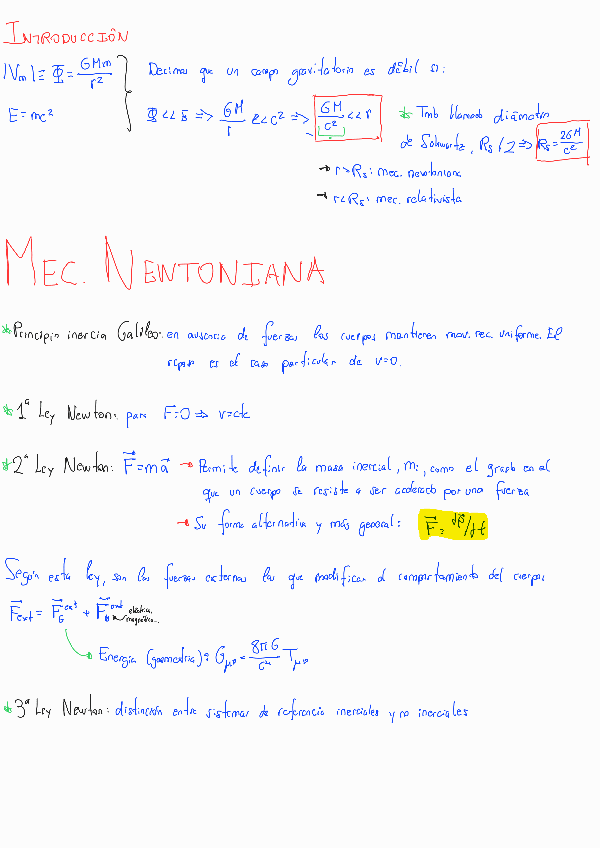 INTRODUCCIÓN
|Vm| ≡ Φ = GMm/r² } Decimos que un campo gravitatorio es débil si:
E=mc² Φ << E => GM/r << c² => GM/c² << r * Tmb llamado diámetro
de Schwartz, Rs/2 => Rs = 2GM/c²
→ r>Rs: mec. newtoniana
→ r<Rs: mec. relativista
MEC. NEWTONIANA
* Principio inercia Galileo: en ausencia de fuerzas los cuerpos mantienen mov. rec. uniforme. El
reposo es el caso particular de v=0.
* 1ª Ley Newton: para F=0 => v=cte
* 2ª Ley Newton: F⃗=ma⃗ → Permite definir la masa inercial, mi, como el grado en el
que un cuerpo se resiste a ser acelerado por una fuerza
→ Su forma alternativa y más general: F⃗ = dp⃗/dt
Según esta ley, son las fuerzas externas las que modifican el comportamiento del cuerpo
F⃗ext = F⃗G ext + F⃗ ext eléctrica, magnética...
→ Energía (geometría): Gμν = 8πG/c⁴ Tμν
* 3ª Ley Newton: distinción entre sistemas de referencia inerciales y no inerciales